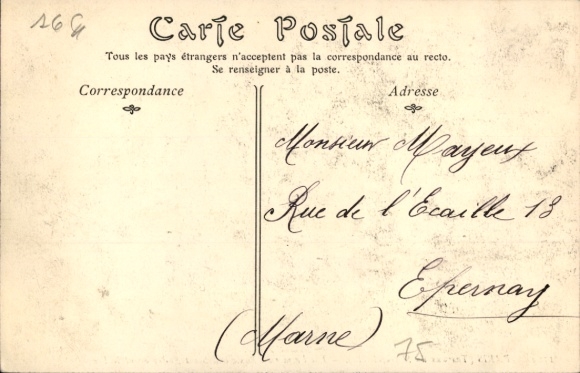 Carte Postale
Tous les pays étrangers n'acceptent pas la correspondance au recto.
Se renseigner à la poste.
Correspondance
Adresse
Monsieur Mayeux
Rue de l'Ecaille 13
Epernay
(Marne)
75